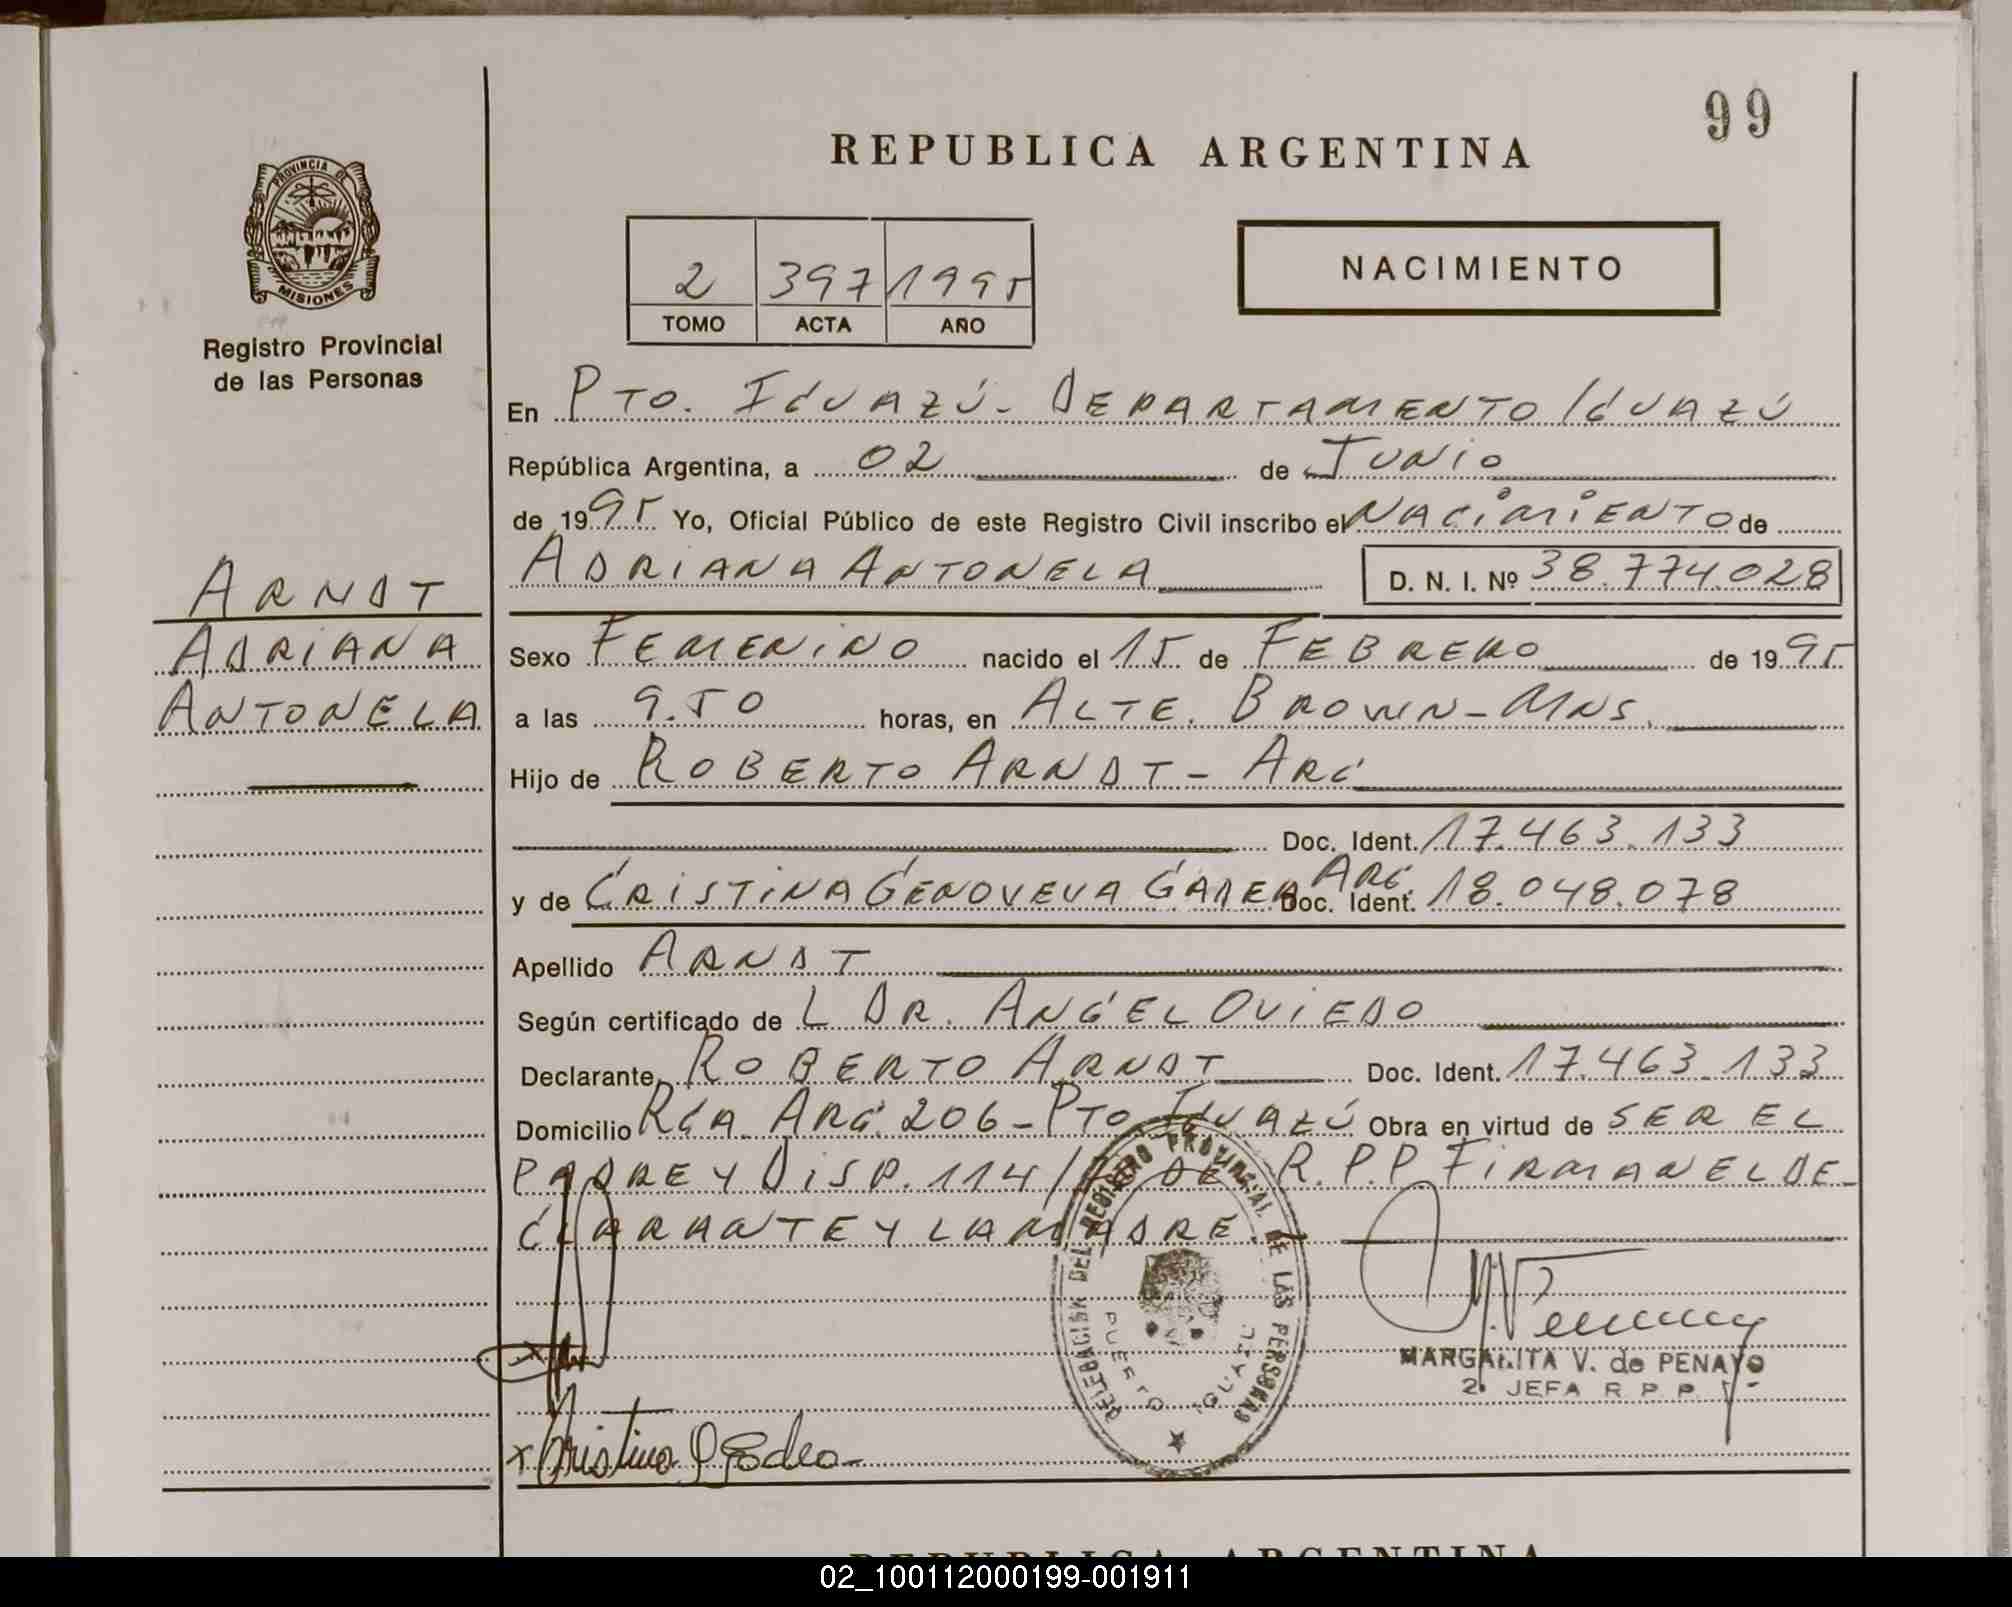 99
REPUBLICA ARGENTINA
PROVINCIA DE
MISIONES
Registro Provincial
de las Personas
2 397 1995
TOMO ACTA AÑO
NACIMIENTO
En PTO. IGUAZÚ - DEPARTAMENTO IGUAZÚ
República Argentina, a 02 de JUNIO
de 1995 Yo, Oficial Público de este Registro Civil inscribo el NACIMIENTO de
ADRIANA ANTONELA D. N. I. Nº 38.774.028
ARNDT
ADRIANA
ANTONELA
Sexo FEMENINO nacido el 15 de FEBRERO de 1995
a las 9.50 horas, en ALTE. BROWN - MNS.
Hijo de ROBERTO ARNDT - ARG
Doc. Ident. 17.463.133
y de CRISTINA GENOVEVA ARG. Doc. Ident. 18.048.078
Apellido ARNDT
Según certificado de L DR. ANGEL OVIEDO
Declarante ROBERTO ARNDT Doc. Ident. 17.463.133
Domicilio RCA. ARG. 206 - PTO IGUAZÚ Obra en virtud de SER EL
PADRE Y DISP. 114/ DE R.P.P FIRMAN EL DE-
CLARANTE Y LA MADRE.
DELEGACION DEL REGISTRO PROVINCIAL DE LAS PERSONAS
PUERTO IGUAZU
MARGARITA V. de PENAYO
2º JEFA R. P. P.
x Cristina G
REPUBLICA ARGENTINA
02_100112000199-001911